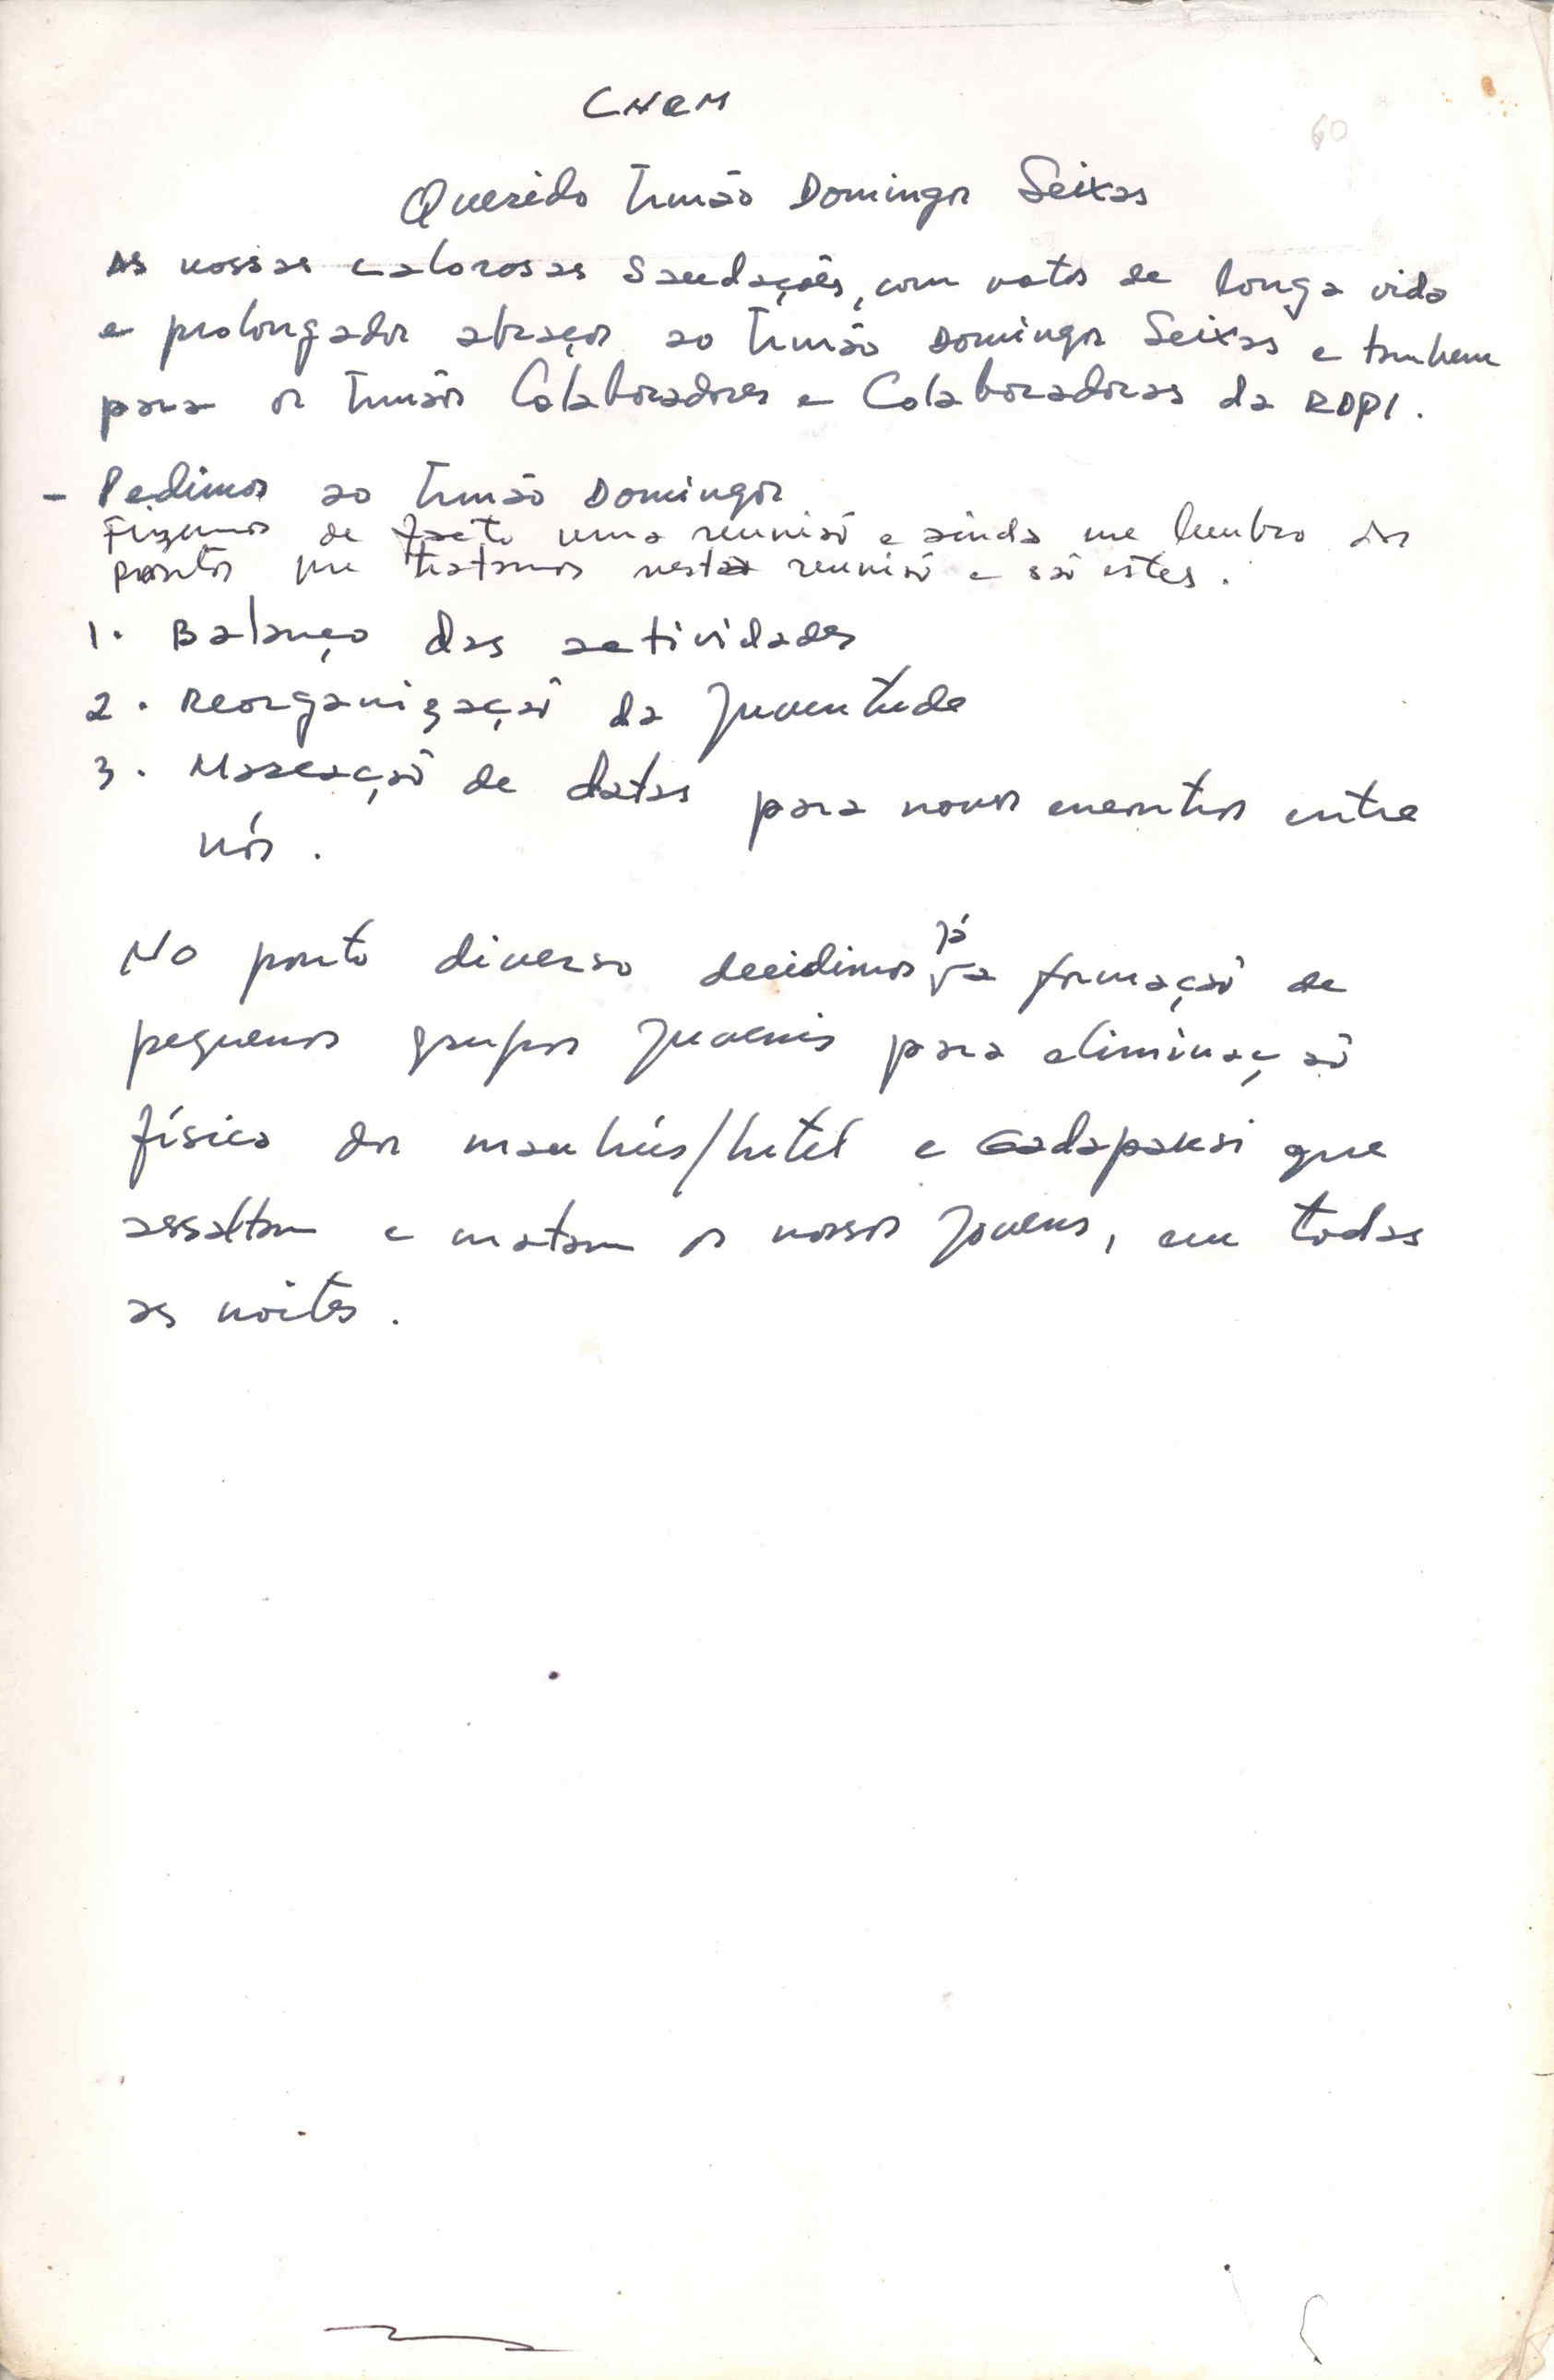 CNRM
60
Querido Irmão Domingos Seixas
As nossas calorosas Saudações, com votos de longa vida
e prolongados abraços ao Irmão Domingos Seixas e tambem
para os Irmãos Colaboradores e Colaboradoras da RDPI.
- Pedimos ao Irmão Domingos
Fizemos de facto uma reunião e ainda me lembro dos
pontos que tratamos nesta reunião e são estes.
1. Balanço das actividades
2. Reorganização da Juventude
3. Marcação de datas para novos encontros entre
nós.
No ponto diverso decidimos já a formação de
pequenos grupos Juvenis para eliminação
física dos mauhús/Intel e Gadapaksi que
assaltam e matam os nossos Jovens, em todas
as noites.